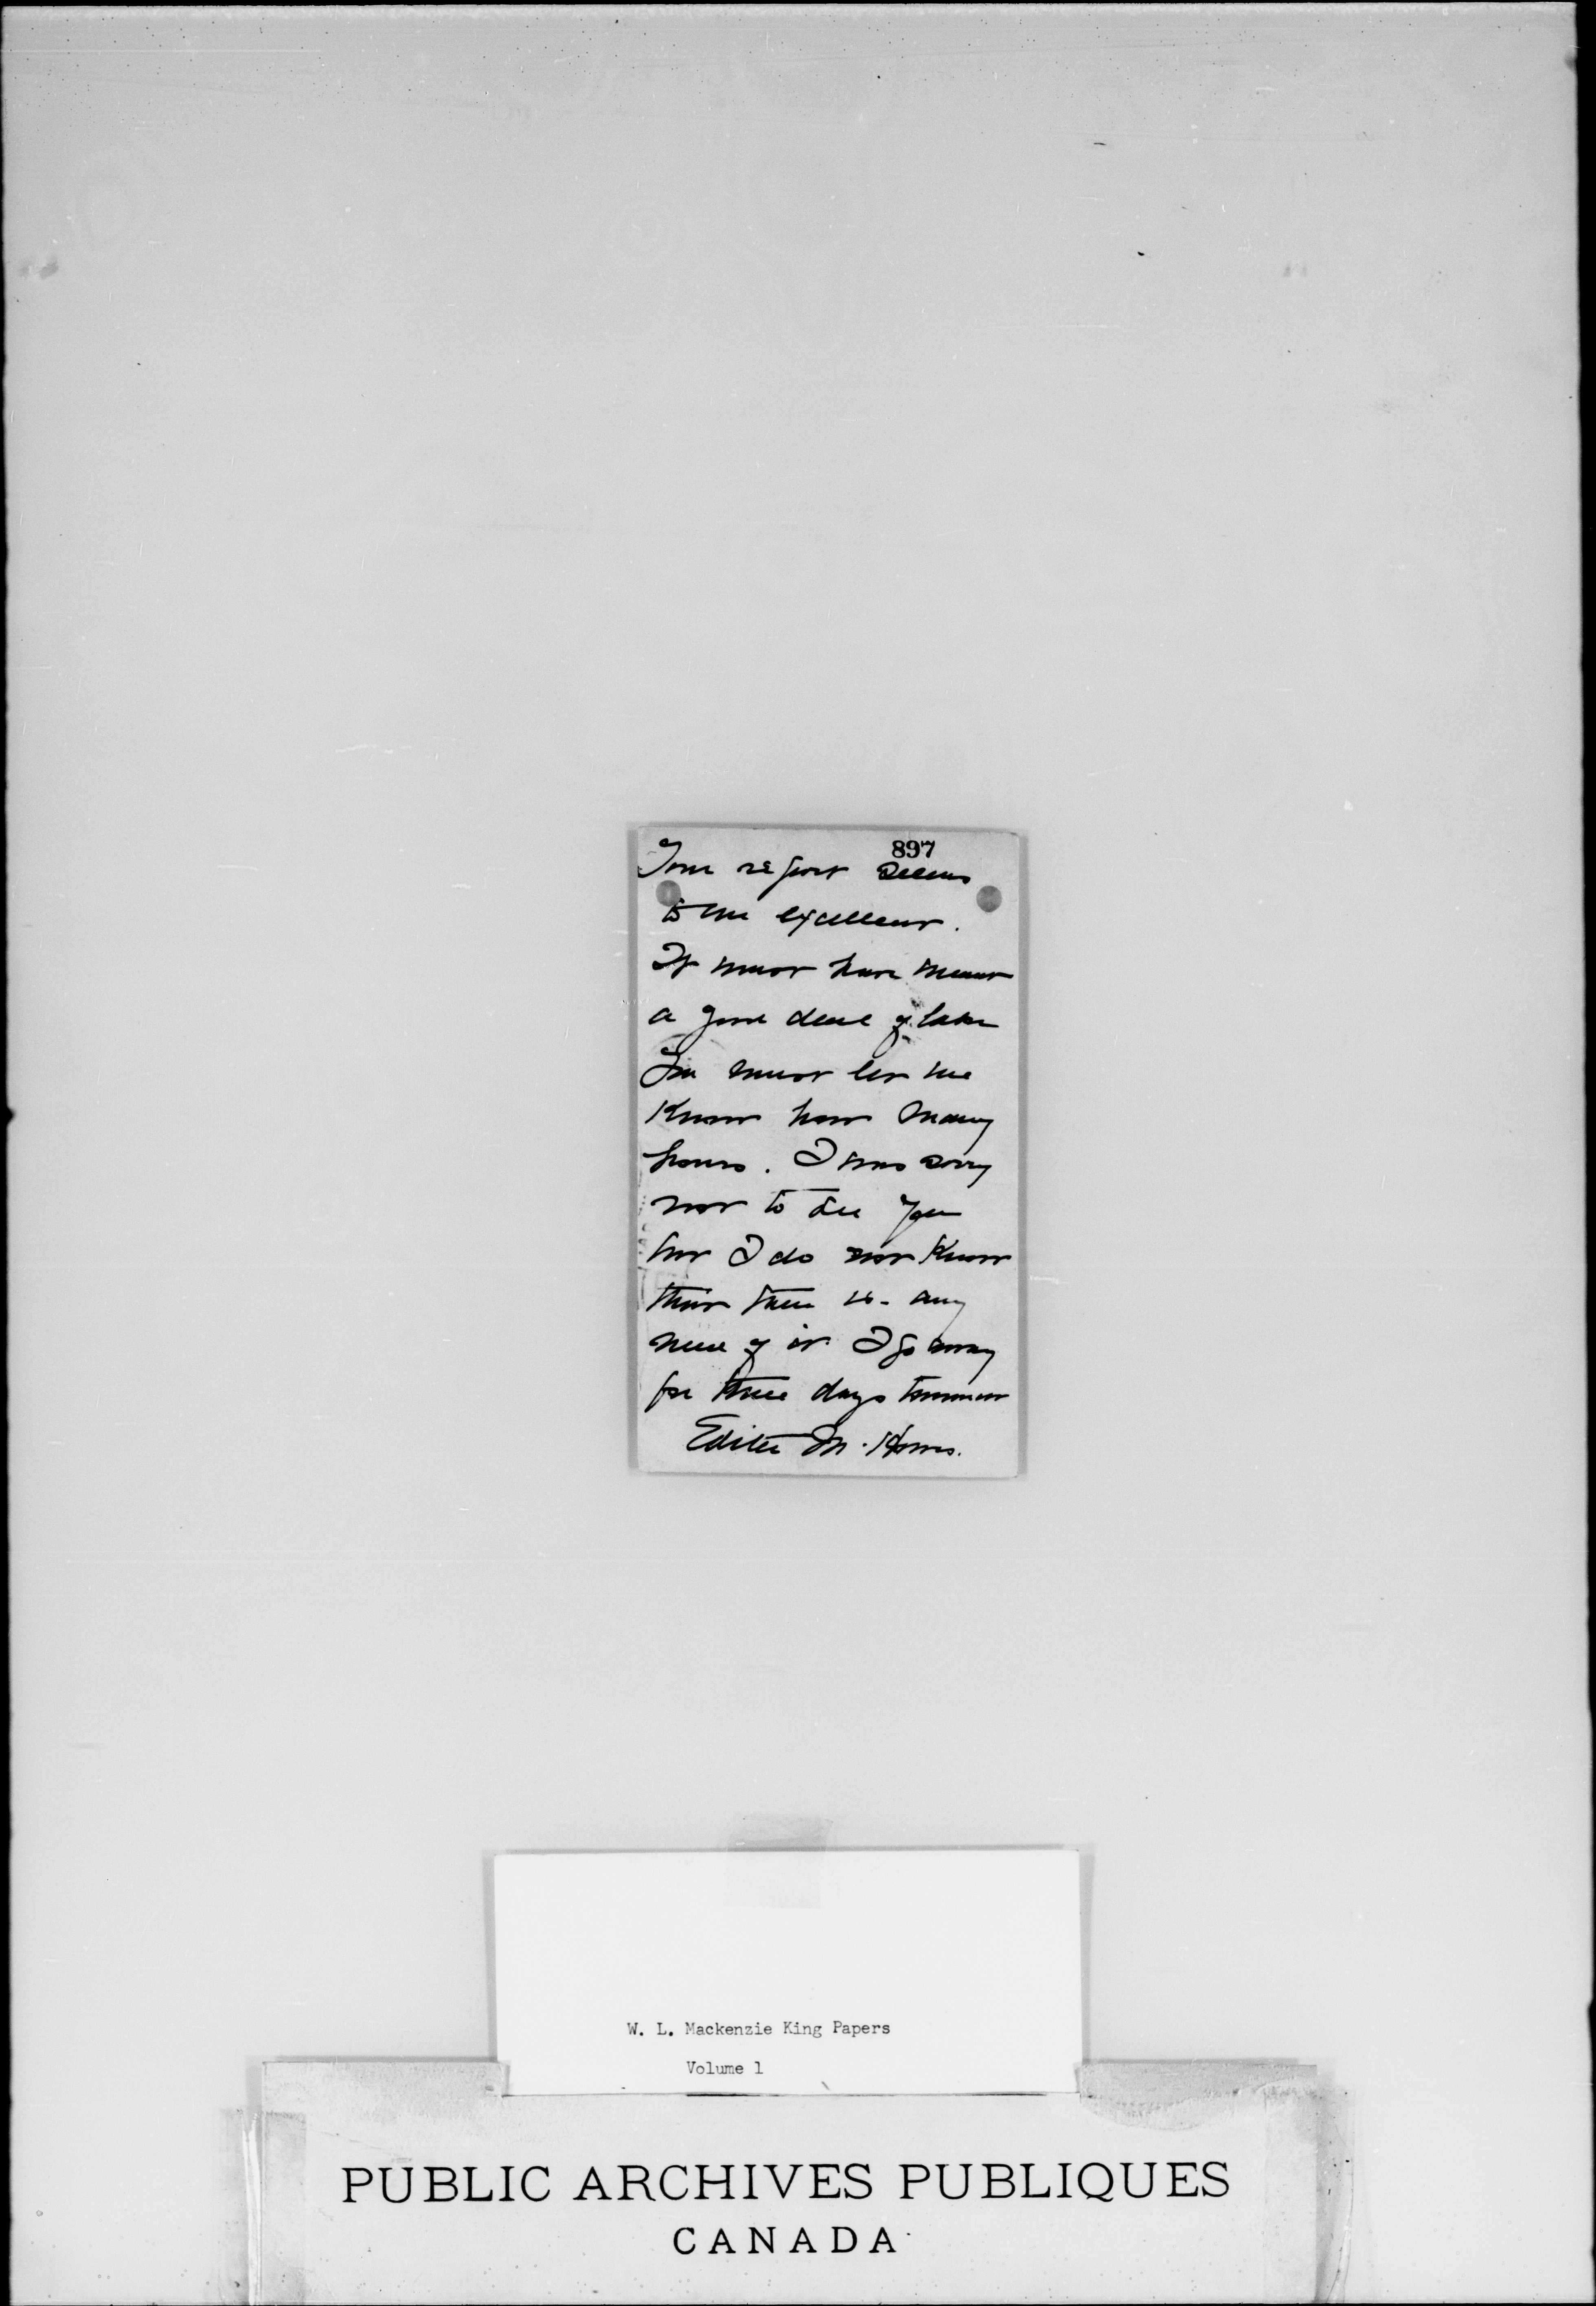 897
Your report seems
to me excellent.
It must have meant
a good deal of labor
You must let me
know how many
hours. I was sorry
not to see you
but I do not know
that there is any
need of it I go away
for three days tomorrow
Edith M. Howes.
W. L. Mackenzie King Papers
Volume 1
PUBLIC ARCHIVES PUBLIQUES
CANADA